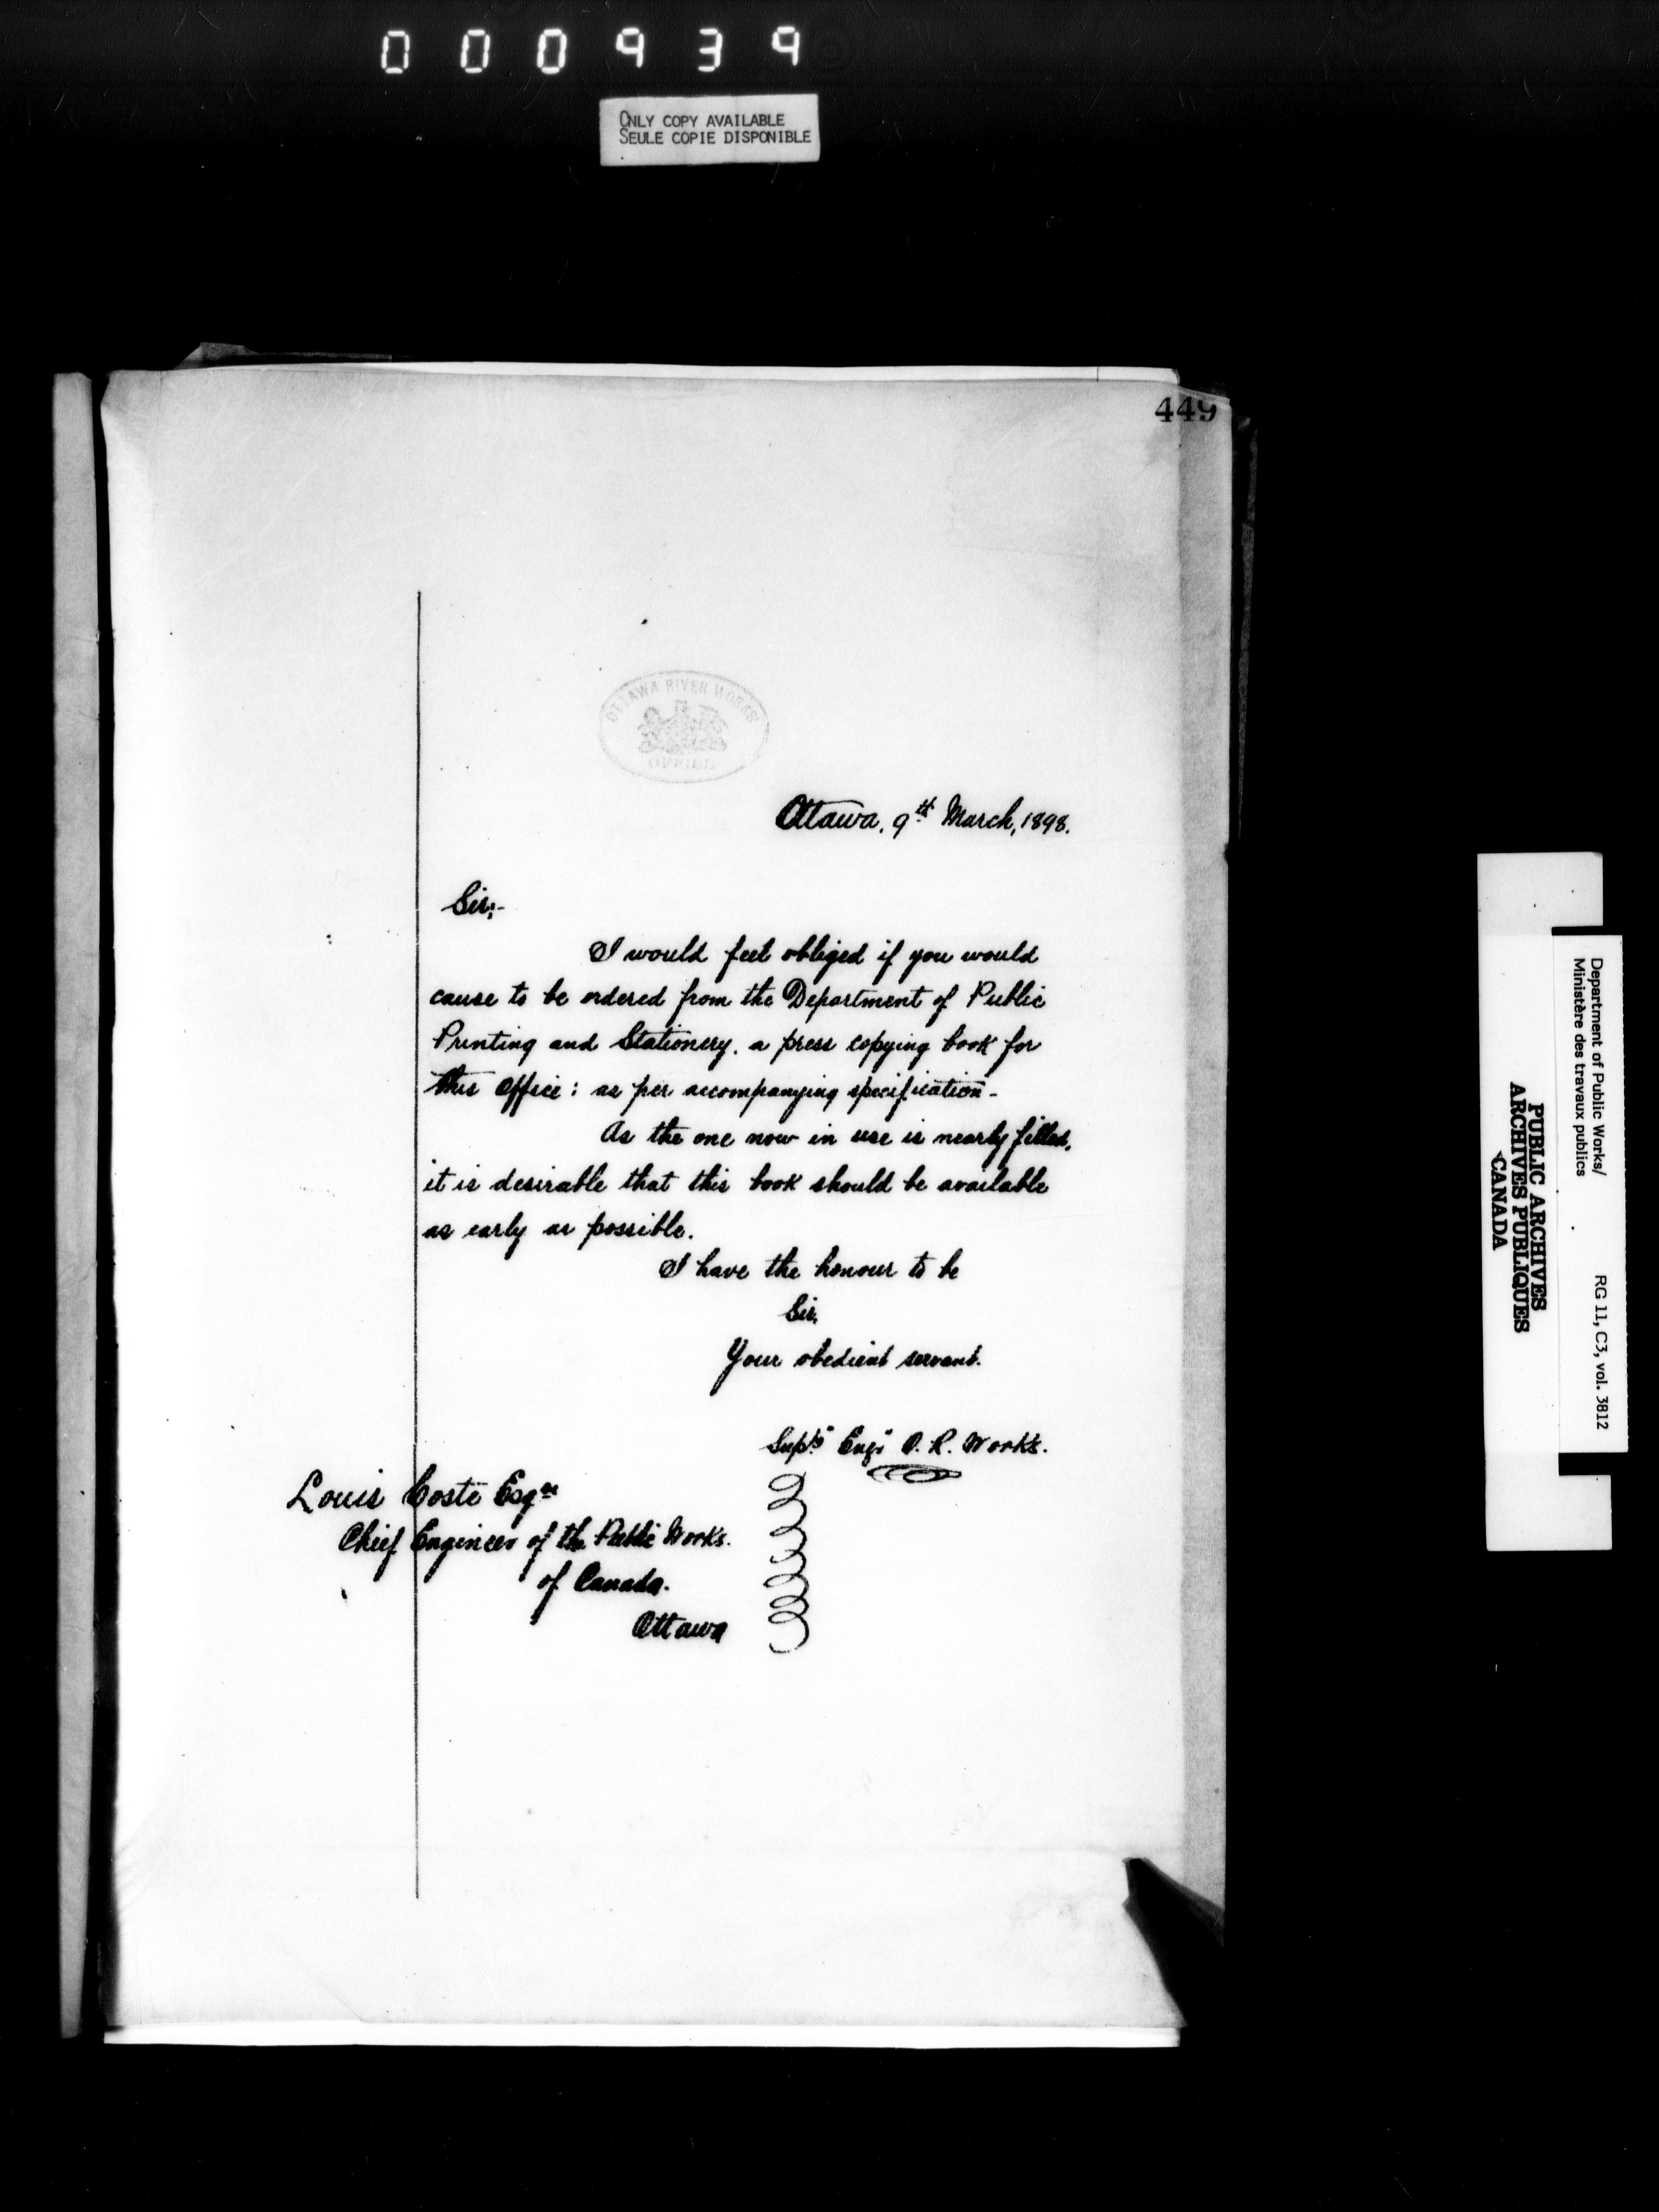 000939
ONLY COPY AVAILABLE
SEULE COPIE DISPONIBLE
449
OTTAWA RIVER WORKS
Ottawa, 9th March, 1898.
Sir:-
I would feel obliged if you would
cause to be ordered from the Department of Public
Printing and Stationery, a press copying book for
this Office: as per accompanying specification-
As the one now in use is nearly filled,
it is desirable that this book should be available
as early as possible.
I have the honour to be
Sir,
Your obedient servant.
Suptg Engr O. R. Works.
Louis Coste Esqre
Chief Engineer of the Public Works.
of Canada.
Ottawa
Department of Public Works/
Ministère des travaux publics
RG 11, C3, vol. 3812
PUBLIC ARCHIVES
ARCHIVES PUBLIQUES
CANADA